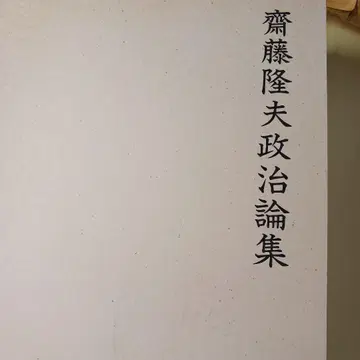 齋藤隆夫政治論集